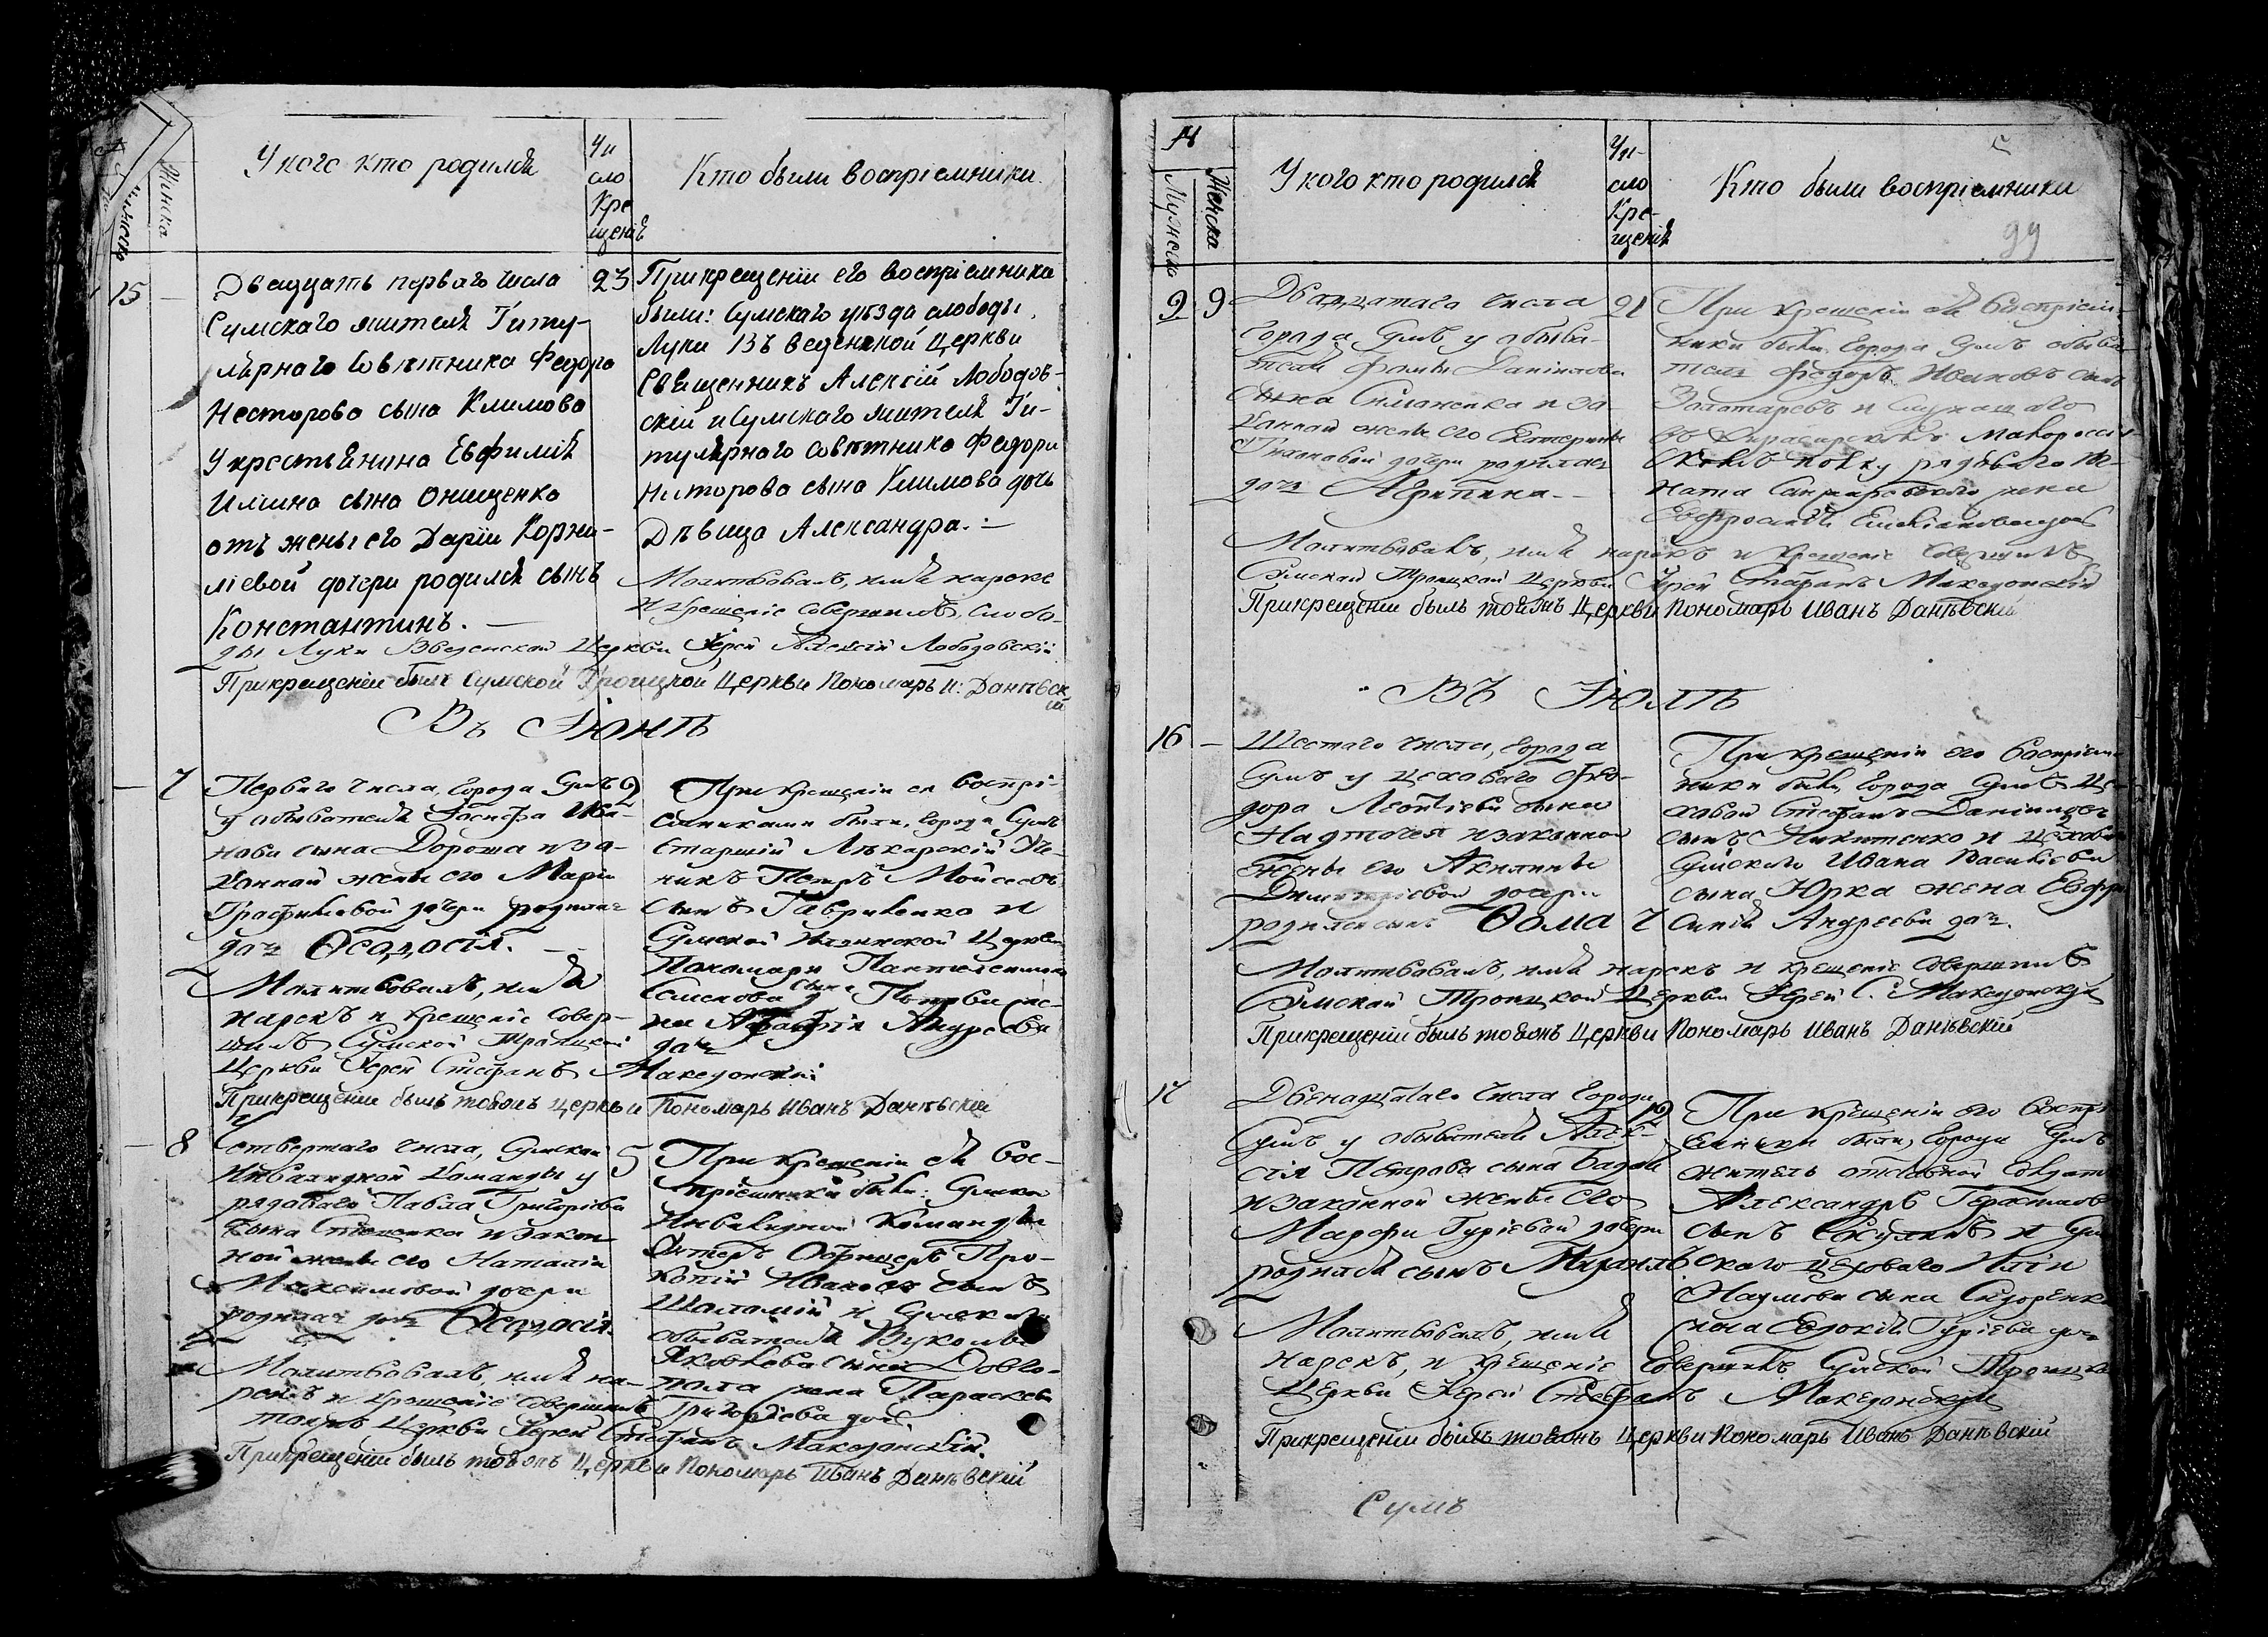 Мужеска
Женска
У кого кто родился
Чи
сло
Кре
щенія
Кто были воспріемники.
15
Двадцать перваго числа
Сумскаго жителя Титу-
лярнаго Совѣтника Федора
Несторова сына Климова
У крестьянина Евфимія
Ильина сына Онищенко
отъ жены его Даріи Корни-
ліевой дочери родился сынъ
Константинъ. —
23
При крещеніи его воспріемника
были: Сумскаго уѣзда слободы
Луки Въведенской Церкви
Священникъ Алексій Лободов-
скій и Сумскаго жителя Ти-
тулярнаго совѣтника Федора
Нисторова сына Климова дочь
Дѣвица Александра. —
Молитвовалъ, имя нареклъ
и крещеніе совершилъ, слобо-
ды Луки Введенской Церкви Іерей Алексій Лободовскій
При крещеніи былъ Сумской Троицкой Церкви Пономарь И: Данѣвск
ій
Въ Іюнѣ
7
Перваго числа, города Сумъ
у обывателя Іосифа Ива-
нова сына Дороша и за-
конной жены его Маріи
Трофимовой дочери родилась
дочь Ѳеодосія. —
2
При крещеніи ея воспрі-
емниками были, города Сумъ
Старшій Лѣкарскій Уче-
никъ Петръ Мойсеевъ
сынъ Гавриленко и
Сумской Ильинской Церкви
Пономаря Пантелеимона
сына Попова же-
на Агафія Андреева
дочь
Молитвовалъ, имя
нарекъ и крещеніе совер-
шилъ Сумской Троицкой
Церкви Іерей Стефанъ Македонскій
При крещеніи былъ тоя жъ церкви Пономарь Иванъ Данѣвскій
8
Четвертаго числа, Сумской
Инвалидной Команды у
рядоваго Павла Григоріева
сына Степенка и закон
ной жены его Наталіи
Максимовой дочери
родилась дочь Ѳеодосія.
5
При крещеніи ея вос-
пріемники были: Сумской
Инвалидной Команды
Унтеръ Офицеръ Про-
копій Ивановъ сынъ
и Сумскаго
обывателя Вукола
Яковлева сына Довго-
пола жена Параскева
Григоріева дочь
Молитвовалъ, имя на-
рекъ и крещеніе совершилъ
тояжъ Церкви Іерей Стефанъ Македонскій.
При крещеніи былъ тоя жъ Церкви Пономарь Иванъ Данѣвскій
Мужеска
Женска
У кого кто родился
Чи-
сло
Кре-
щенія
Кто были воспріемники
99
9
9
Двадцатаго числа
города Сумъ у обыва-
теля Фомы Даніилова
сына Симоненка и за-
конной жены его Екатерины
Тихоновой дочери родилась
дочь Агрипина. —
21
При крещеніи ея воспріем-
ники были: города Сумъ обыва
тель Федоръ Ивановъ сынъ
Золотаревъ и служащаго
въ Кирасирскомъ Малороссій-
скомъ полку рядоваго Иг-
ната жена
Евфросинія Емельянова дочь
Молитвовалъ, имя нарекъ и крещеніе совершилъ
Сумской Троицкой Церкви Іерей Стефанъ Македонскій
При крещеніи былъ тоя жъ Церкви Пономарь Иванъ Данѣвскій
Въ Іюлѣ
16
Шестаго числа, города
Сумъ у цеховаго Фео-
дора Леонтіева сына
и законной
жены его Акилины
Димитріевой дочери
родился сынъ Ѳома
7
При крещеніи его воспріем
ники были, города Сумъ Це
ховой Стефанъ Даніиловъ
сынъ Никитенко и цеховаго
Сумскаго Ивана Васильева
сына Юрка жена Евфро
синія Андреева дочь.
Молитвовалъ, имя нарекъ и крещеніе совершилъ
Сумской Троицкой Церкви Іерей С. Македонскій
При крещеніи былъ тоя жъ Церкви Пономарь Иванъ Данѣвскій
17
Двенадцатаго числа города
Сумъ у обывателя Алек-
сія Петрова сына
и законной жены его
Марфы Гуріевой дочери
родился сынъ Михаилъ
При крещеніи его воспрі
емники были, города Сумъ
житель отставной солдатъ
Александръ Герасимовъ
сынъ и Сум
скаго цеховаго Иліи
Наумова сына Сидоренка
жена Евдокія Гуріева дочь
Молитвовалъ, имя
нарекъ, и крещеніе совершилъ Сумской Троицкой
Церкви Іерей Стефанъ Македонскій
При крещеніи былъ тоя жъ Церкви Пономарь Иванъ Данѣвскій
Сумъ